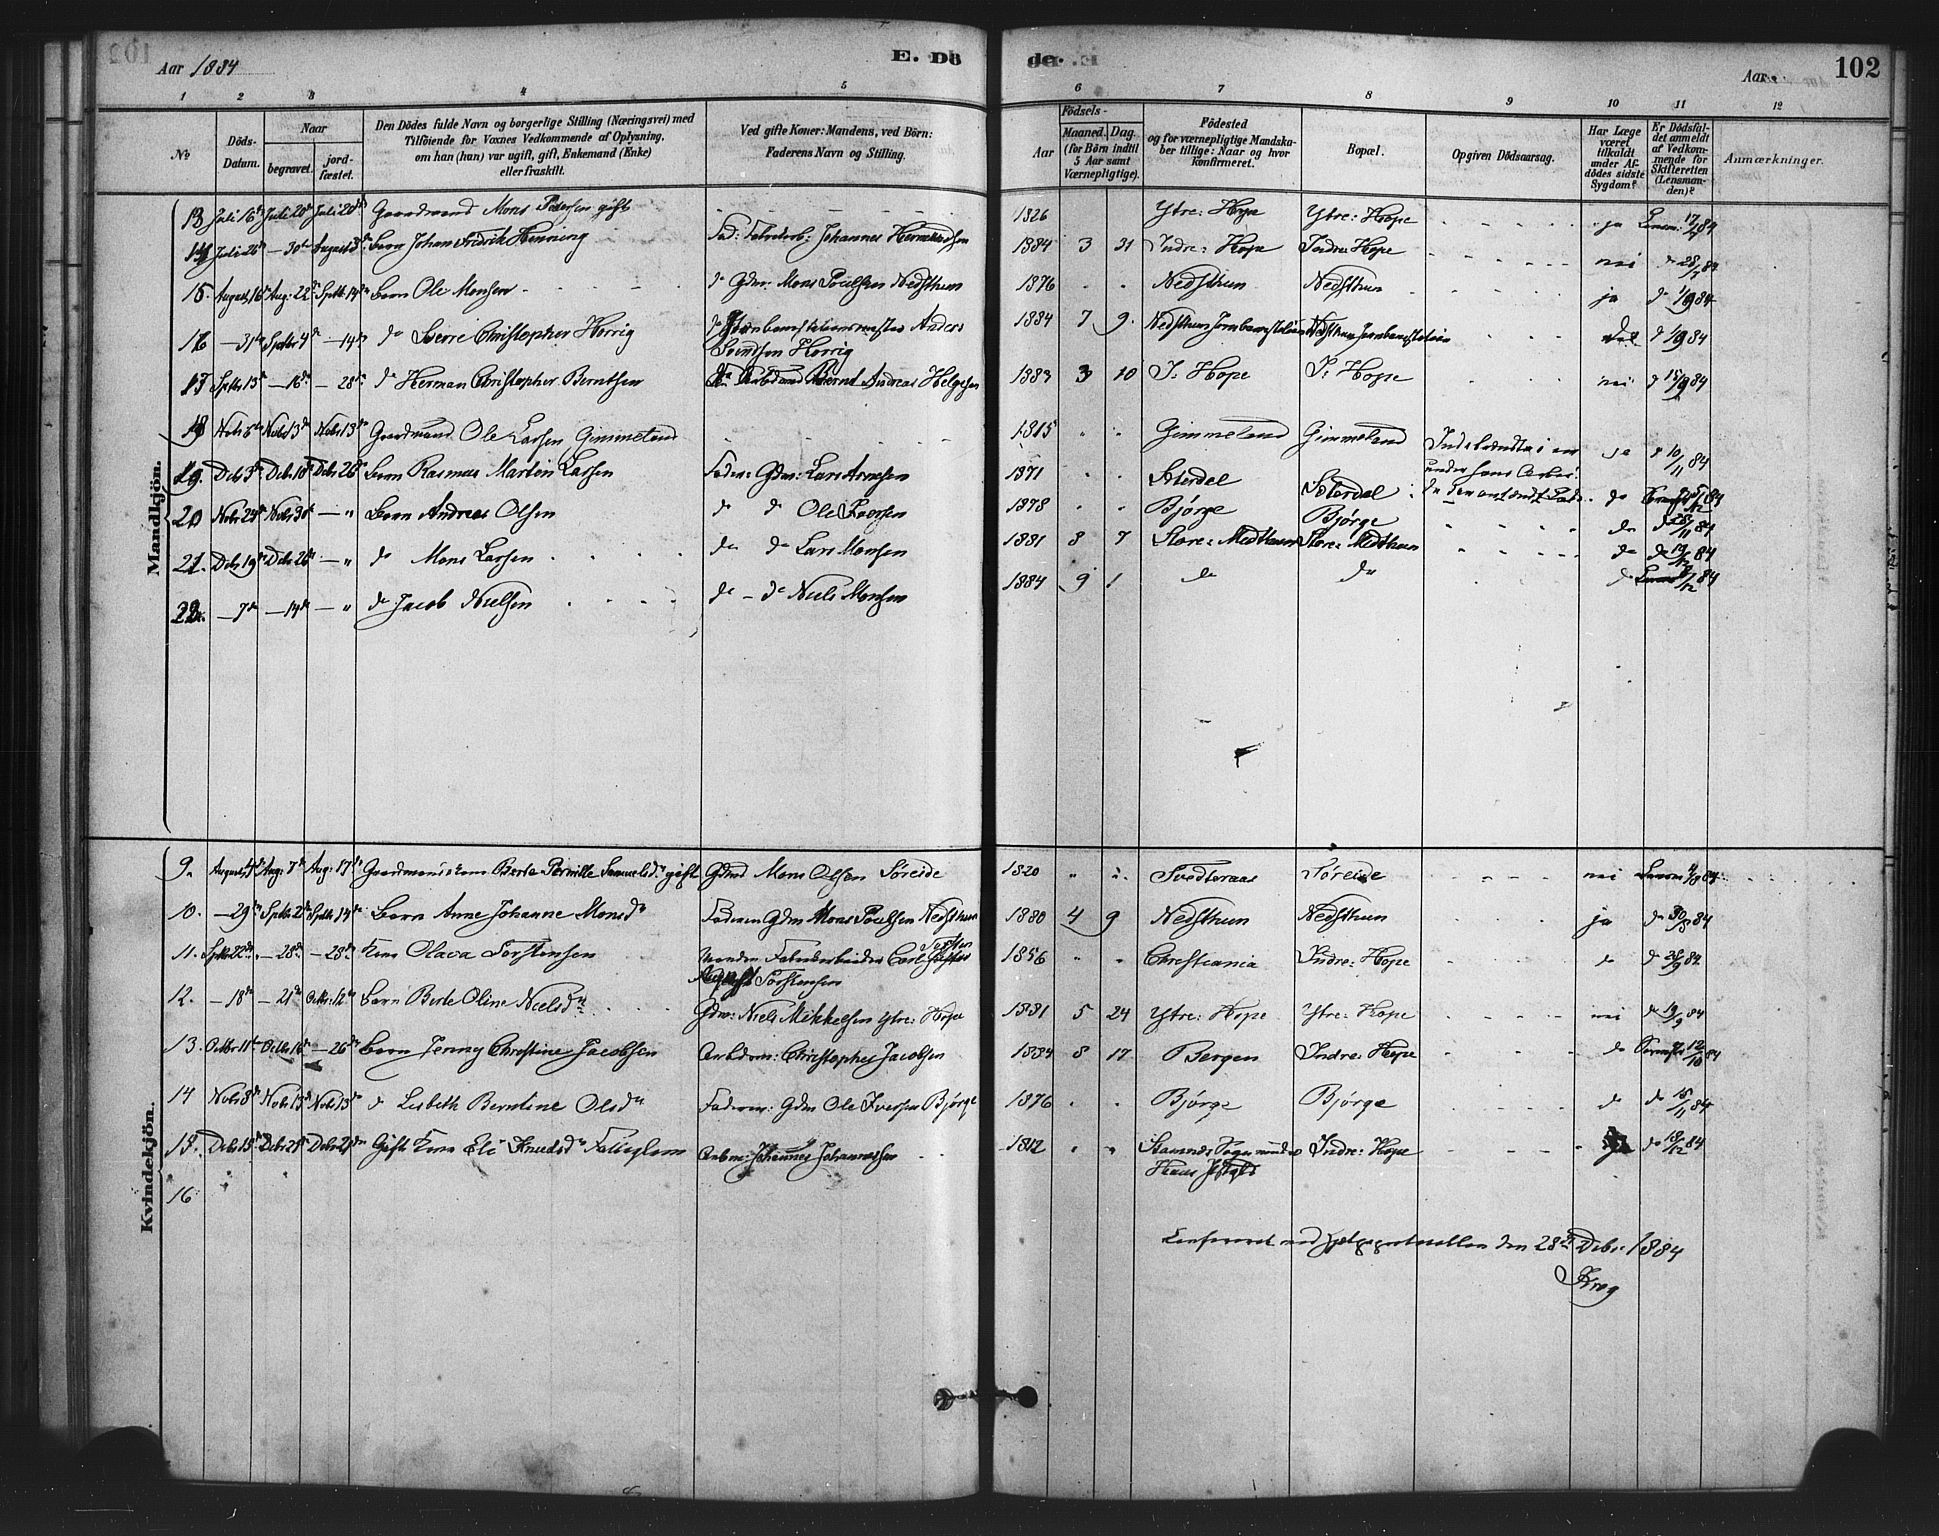 102
Aar 1884
E. Dö
de.
Aar
102
1 2 3 4 5
6 7 8 9 10 11 12
No
Döds-
Datum.
Naar
begravet.
jord-
fæstet.
Den Dödes fulde Navn og borgerlige Stilling (Næringsvei) med
Tilföiende for Voxnes Vedkommende af Oplysning,
om han (hun) var ugift, gift, Enkemand (Enke)
eller fraskilt.
Ved gifte Koner: Mandens, ved Börn:
Faderens Navn og Stilling.
Födsels-
Aar
Maaned. Dag.
(for Börn indtil
5 Aar samt
Værnepligtige).
Födested
og for værnepligtige Mandska-
ber tillige: Naar og hvor
konfirmeret.
Bopæl.
Opgiven Dödsaarsag.
Har Læge
været
tilkaldt
under Af-
dödes sidste
Sygdom?
Er Dödsfal-
det anmeldt
af Vedkom-
mende for
Skifteretten
(Lensman-
den)?
Anmærkninger.
Mandkjön.
13 Juli 16de Juli 20de Juli 20de Gaardmand Mons Pedersen gift 1826 Ytre: Hope Ytre: Hope ja Lensm. 17/7 84
14 Juli 26 — 30te August 3de Barn Johan Fredrik Henning Fad: Fabrikarb: Johannes 1884 3 31 Indre: Hope Indre: Hope nei do 28/7 84
15. August 16de Aug: 22de Septbr 14de Barn Ole Monsen do Gdm: Mons Poulsen Nedsthun 1876 Nedsthun Nedsthun ja do 1/9 84
16 — 31te Septbr 4de — 14de do Sverre Christopher Herrig do Jernbanestationsmester Anders
Svendsen Herrig 1884 7 9. Nedsthun Jernbanestation Nedsthun Jernbanestation do 1/9 84
17 Septbr 13de — 16de — 28de do Herman Christopher Berntsen Arbdmd Bernt Andreas Helgesen 1883 3 10 I: Hope I: Hope nei do 15/9 84
18 Novbr 6te Novbr 13de Novbr 13de Gaardmand Ole Larsen Gimmeland 1815 Gimmeland Gimmeland ja do 10/11 84
19. Decbr 3de Decbr 10de Decbr 26de Barn Rasmus Martin Larsen Fader: Gdm: Lars Arnesen 1871 Soterdal Soterdal do 84
20 Novbr 24de Novbr 30te — " Barn Andreas Olsen do do Ole Iversen 1878 Bjørge Bjørge do do 28/11 84
21. Decbr 19de Decbr 26de — " do Mons Larsen do do Lars Monsen 1881 8 7 Store: Midthun Store: Midthun do do 19/12 84
22. — 7de — 14de — " do Jacob Nielsen do — do Niels Monsen 1884 9 1 do do do 84
Kvindekjön.
9. August 4de Aug: 7de Aug: 17de Gaardmandskone Berte Pernille Samuelsdr gift Gdmd Mons Olsen Søreide 1820 Tvedteraas Søreide nei
10. — 29de Septbr 2den Septbr 14de Barn Anne Johanne Monsdr Faderen Gdm Mons Poulsen Nedsthun 1880 4 9 Nedsthun Nedsthun ja do 30/8 84
11. Septbr 22de — 28de — 28de Kone Olava Torstensen Manden Fabrikarbeider Carl
August Torstensen 1856 Christiania Indre: Hope do do 26/9 84
12. — 18de — 21de Octbr 12te Barn Berte Oline Nielsdr Gdm: Niels Mikkelsen Ytre: Hope 1881 5 24 Ytre: Hope Ytre: Hope nei do 19/9 84
13. Octbr 11te Octbr 16de — 26de Barn Jenny Christine Jacobsen Arbdm: Christopher Jacobsen 1884 8 17 Bergen Indre: Hope do 12/10 84
14 Novbr 8de Novbr 13de Novbr 13de do Lisbeth Berntine Olsdr Faderen: Gdm Ole Iversen Bjørge 1876 Bjørge Bjørge do do 15/11 84
15. Decbr 15de Decbr 21de Decbr 21de Gift Kone Eli Knudsdr Arbm: Johannes Johannessen 1812 Indre: Hope ja do 18/12 84
16
Confereret med den 28de Decbr 1884
Krog